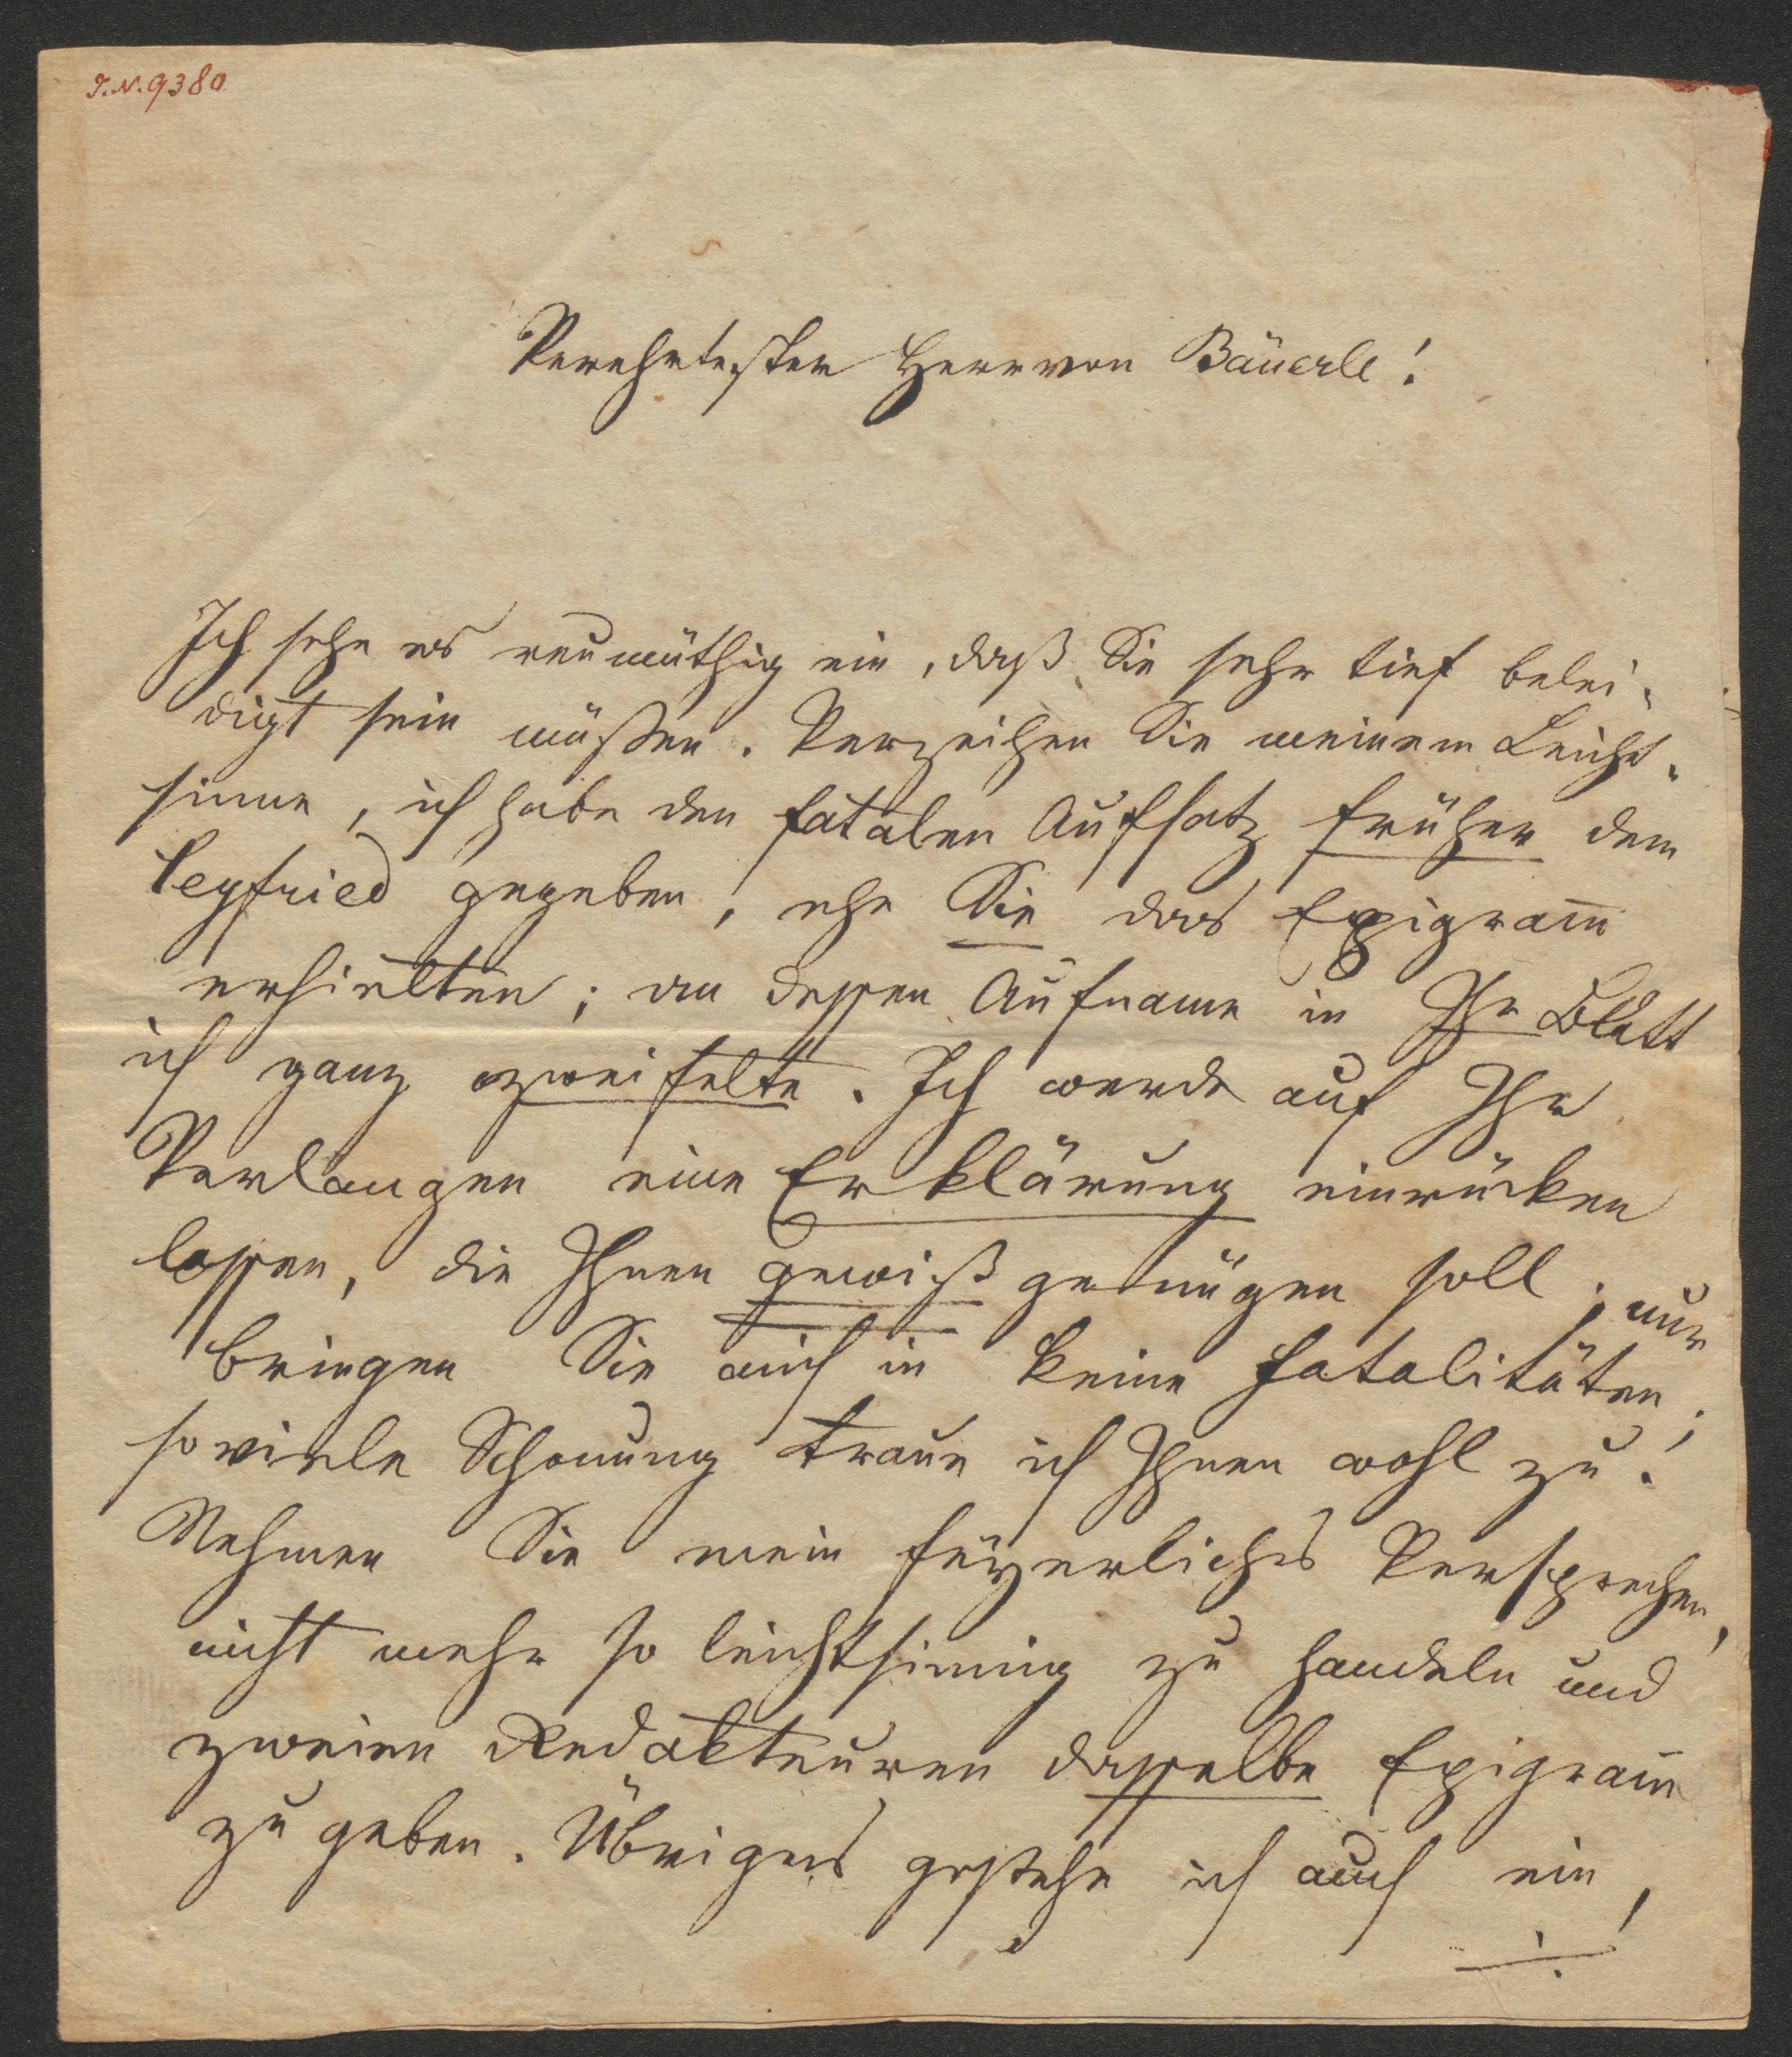 I.N.9380
Verehrtester Herr von Bäuerle!
Ich sehe es reumüthig ein, daß Sie sehr tief belei-
digt sein müßen. Verzeihen Sie meinem Leicht-
sinne, ich habe den fatalen Aufsatz früher dem
Seyfried gegeben, ehe Sie das Epigram̅
erhielten; an dessen Aufname in Ihr Blatt
ich ganz zweifelte. Ich werde auf Ihr
Verlangen eine Erklärung einrücken
lassen, die Ihnen gewiß genügen soll; nur
bringen Sie mich in keine Fatalitäten;
so viele Schonung traue ich Ihnen wohl zu.
Nehmen Sie mein feyerliches Versprechen,
nicht mehr so leichtsinnig zu handeln und
zweien Redakteuren dasselbe Epigram̅
zu geben. Übrigens gestehe ich auch ein,
./.